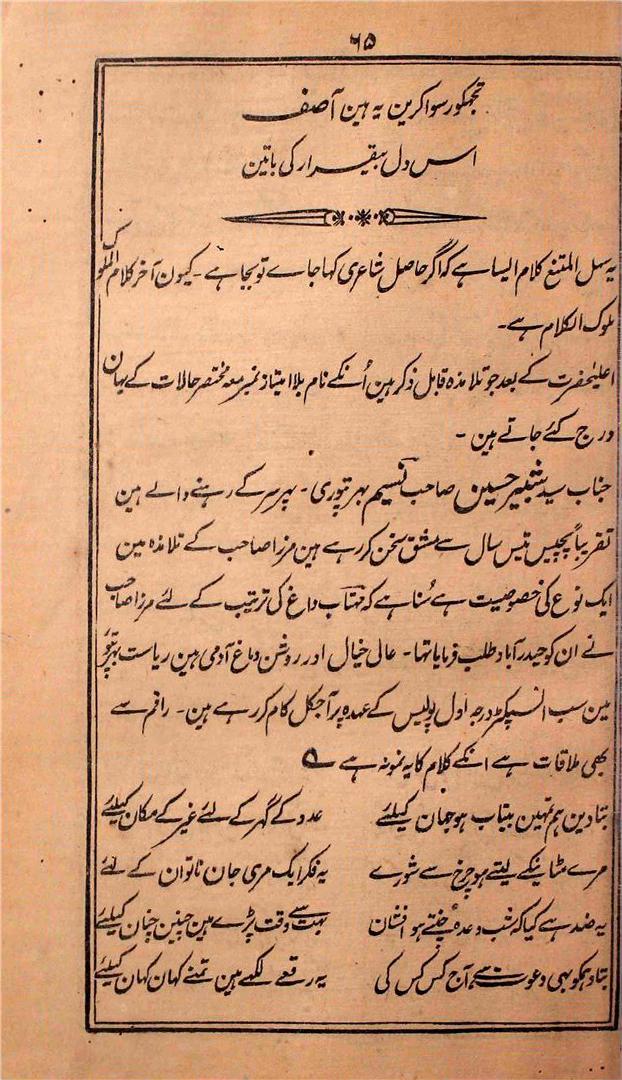 ۶۵
تجھکو رسوا کرین یہ ہین آصف
اس دل بیقرار کی باتین
یہ سہل الممتنع کلام ایسا ہے کہ اگر حاصل شاعری کہا جاے تو بجا ہے۔ کیون آخر کلام الملوک
ملوک الکلام ہے۔
اعلیٰحضرت کے بعد جو تلامذہ قابل ذکر ہین اُنکے نام بلا امتیاز نمبر معہ مختصر حالات کے یہان
درج کئے جاتے ہین۔
جناب سید شبیر حسین صاحب نسیم بھرتپوری۔ پہرسر کے رہنے والے ہین
تقریباً پچیس تیس سال سے مشق سخن کر رہے ہین مرزا صاحب کے تلامذہ مین
ایک نوع کی خصوصیت ہے سُنا ہے کہ مہتاب داغ کی ترتیب کے لئے مرزا صاحب
نے ان کو حیدرآباد طلب فرمایا تھا۔ عالی خیال اور روشن دماغ آدمی ہین ریاست بھرتپور
مین سب انسپکٹر درجہ اول پولیس کے عہدہ پر آجکل کام کر رہے ہین۔ راقم سے
بھی ملاقات ہے انکے کلام کا یہ نمونہ ہے ؎
بتا دین ہم تمہین بیتاب ہو جہان کیلئے عدو کے گھر کے لئے غیر کے مکان کیلئے
مرے مٹانیکے لیتے ہو چرخ سے شورے یہ فکر ایک مری جان ناتوان کے لئے
یہ ضد ہے کیا کہ شب وعدہ چُنتے ہو افشان بہت سے وقت پڑے ہین چنین چنان کیلئے
بتا دو ہمکو بھی دعوت ہے آج کس کس کی یہ رقعے لکھے ہین تمنے کہان کہان کیلئے